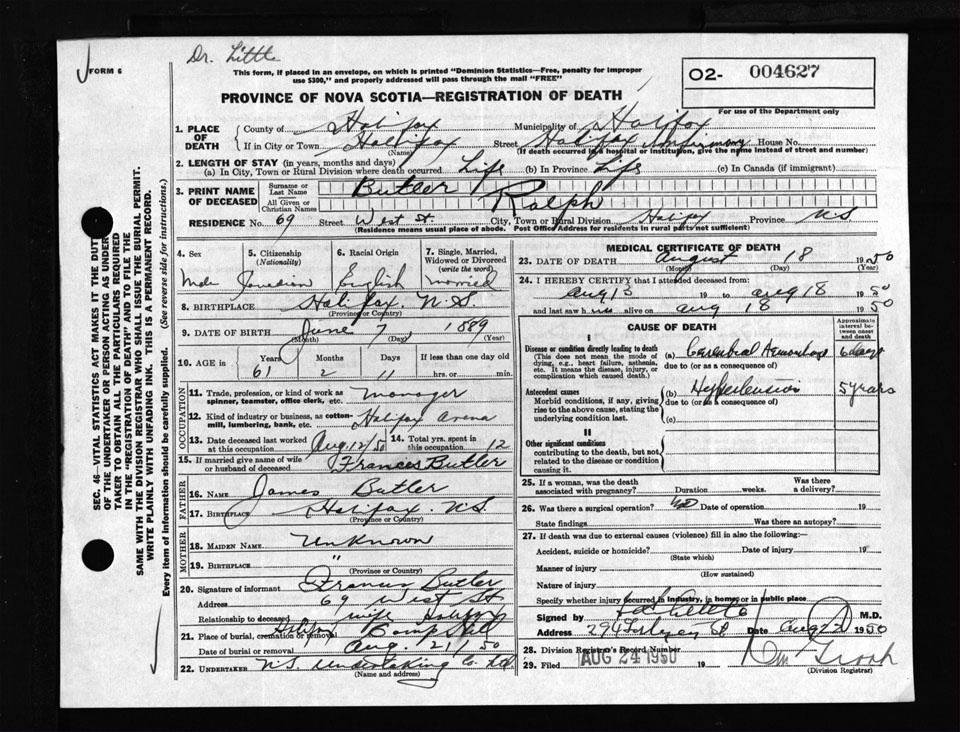 Dr. Little
FORM 6
This form, if placed in an envelope, on which is printed "Dominion Statistics—Free, penalty for improper
use $300," and properly addressed will pass through the mail "FREE"
02- 004627
For use of the Department only
PROVINCE OF NOVA SCOTIA—REGISTRATION OF DEATH
1. PLACE OF DEATH
County of Halifax Municipality of Halifax
If in City or Town Halifax Street Halifax Infirmary House No.
(Name) (If death occurred in a hospital or institution, give the name instead of street and number)
2. LENGTH OF STAY (in years, months and days)
(a) In City, Town or Rural Division where death occurred Life (b) In Province Life (c) In Canada (if immigrant)
3. PRINT NAME OF DECEASED
Surname or Last Name Butler
All Given or Christian Names Ralph
RESIDENCE No. 69 Street West St. City, Town or Rural Division Halifax Province N.S
(Residence means usual place of abode. Post Office Address for residents in rural parts not sufficient)
4. Sex Male
5. Citizenship (Nationality) Canadian
6. Racial Origin English
7. Single, Married, Widowed or Divorced (write the word) married
8. BIRTHPLACE Halifax. N.S.
(Province or Country)
9. DATE OF BIRTH June 7, 1889
(Month) (Day) (Year)
10. AGE IN Years Months Days If less than one day old
61 2 11 hrs. or min.
OCCUPATION
11. Trade, profession, or kind of work as spinner, teamster, office clerk, etc. manager
12. Kind of industry or business, as cotton-mill, lumbering, bank, etc. Halifax arena
13. Date deceased last worked at this occupation Aug. 12/50 14. Total yrs. spent in this occupation 12
15. If married give name of wife or husband of deceased Frances Butler
FATHER
16. NAME James Butler
17. BIRTHPLACE Halifax. N.S.
(Province or Country)
MOTHER
18. MAIDEN NAME Unknown
19. BIRTHPLACE "
(Province or Country)
20. Signature of informant Frances Butler
Address 69 West St.
Relationship to deceased wife Halifax
21. Place of burial, cremation or removal Halifax Camp Hill
Date of burial or removal Aug. 21/50
22. UNDERTAKER N.S. Undertaking Co. Ltd
(Name and address)
MEDICAL CERTIFICATE OF DEATH
23. DATE OF DEATH August 18 1950
(Month) (Day) (Year)
24. I HEREBY CERTIFY that I attended deceased from:
Aug 13 19 to Aug 18 1950
and last saw him alive on Aug 18 1950
CAUSE OF DEATH
Approximate interval between onset and death
I
Disease or condition directly leading to death
(This does not mean the mode of dying, e.g., heart failure, asthenia, etc. It means the disease, injury, or complication which caused death.)
(a) Cerebral Hemorrhage 6 days
due to (or as a consequence of)
Antecedent causes
Morbid conditions, if any, giving rise to the above cause, stating the underlying condition last.
(b) Hypertension 5 years
due to (or as a consequence of)
(c)
II
Other significant conditions
contributing to the death, but not related to the disease or condition causing it.
25. If a woman, was the death associated with pregnancy? Duration weeks. Was there a delivery?
26. Was there a surgical operation? no Date of operation 19
State findings Was there an autopsy?
27. If death was due to external causes (violence) fill in also the following:—
Accident, suicide or homicide? Date of injury 19
(State which)
Manner of injury
(How sustained)
Nature of injury
Specify whether injury occurred in industry, in home, or in public place
Signed by M.D.
Address Date Aug 22 1950
28. Division Registrar's Record Number
29. Filed AUG 24 1950 19
(Division Registrar)
SEC. 46—VITAL STATISTICS ACT MAKES IT THE DUTY
OF THE UNDERTAKER OR PERSON ACTING AS UNDER
TAKER TO OBTAIN ALL THE PARTICULARS REQUIRED
IN THE "REGISTRATION OF DEATH" AND TO FILE THE
SAME WITH THE DIVISION REGISTRAR WHO SHALL ISSUE THE BURIAL PERMIT.
WRITE PLAINLY WITH UNFADING INK. THIS IS A PERMANENT RECORD.
Every item of information should be carefully supplied. (See reverse side for instructions.)